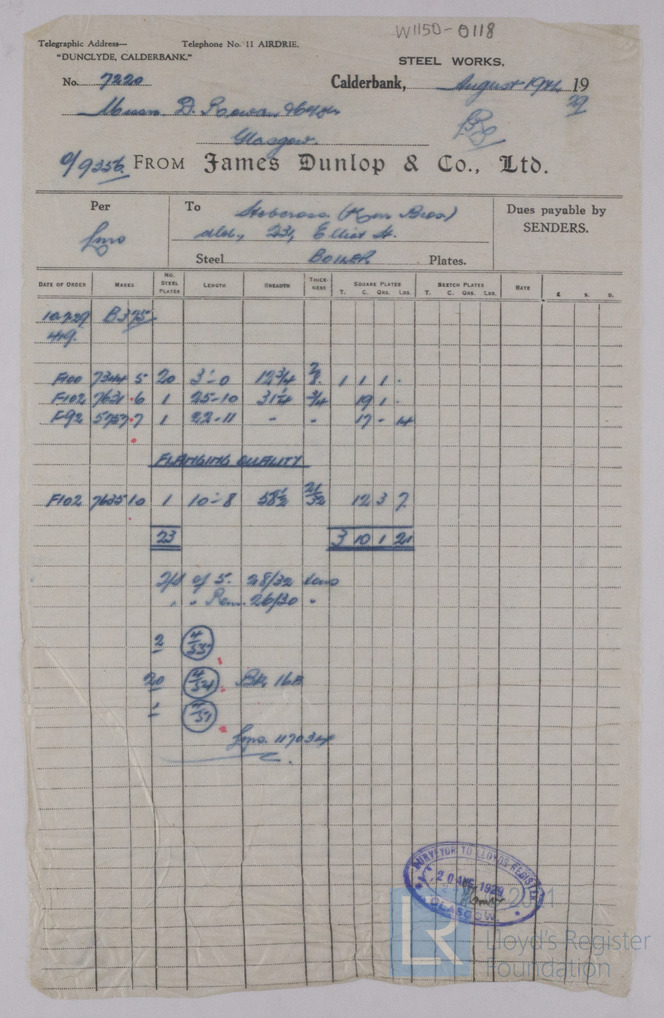 W1150-0118
Telegraphic Address—
"DUNCLYDE, CALDERBANK."
Telephone No. 11 AIRDRIE.
STEEL WORKS,
No. 7220
Calderbank, August 19th, 19 29
Messrs. D. Rowan & Co
Glasgow.
O/9356. FROM James Dunlop & Co., Ltd.
Per
Lms
To Stobcross (Ken Bros)
23, Elliot St.
Steel BOILER Plates.
Dues payable by
SENDERS.
DATE OF ORDER MARKS NO. STEEL PLATES LENGTH BREADTH THICK-NESS SQUARE PLATES T. C. QRS. LBS. SKETCH PLATES T. C. QRS. LBS. RATE £ S. D.
10.7.29 B375
F100 7344 5 20 3-0 12 3/4 7/8 1 1 1 .
F102 7631 6 1 25-10 31 1/4 3/4 19 1 .
F92 5757 7 1 22-11 - - 17 - 14
FLANGING QUALITY
F102 7635 10 1 10-8 58 1/2 21/32 12 3 7
23 3 10 1 21
of 5. 28/32 tons
" " Rem. 26/30 "
2 4/53
20 4/54 BK 16B
1 4/57
Lms. 117034
SURVEYOR TO LLOYD'S REGISTER
20 AUG 1929
GLASGOW
LR
Lloyd's Register
Foundation